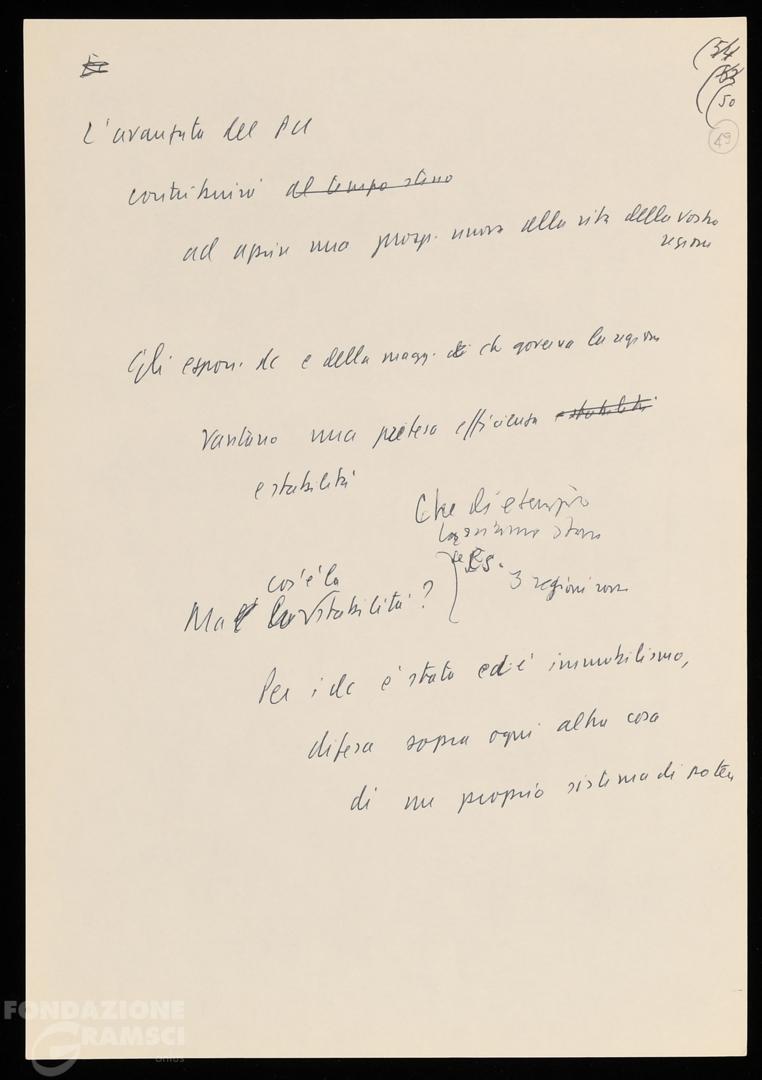 (54
(52
(50
49
L'avanzata del PCI
contribuirà al tempo stesso
ad aprire una prosp. nuova alla vita della vostra
regione
Gli espon. dc e della magg. che governa la regione
vantano una pretesa efficienza e stabilità
e stabilità
Che di esempio
stesso
Es.
3 regioni rosse
cos'è la
Ma la stabilità?
Per i dc è stata ed è immobilismo,
difesa sopra ogni altra cosa
di un proprio sistema di potere
FONDAZIONE
GRAMSCI
onlus